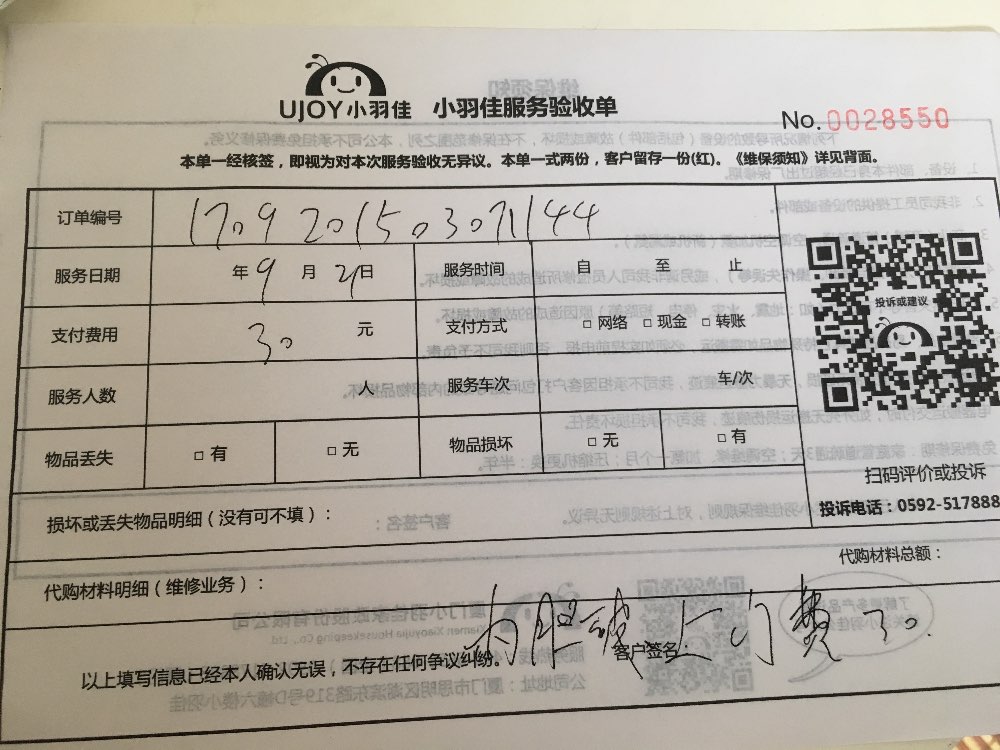 UJOY小羽佳 小羽佳服务验收单
No. 0028550
本单一经核签，即视为对本次服务验收无异议。本单一式两份，客户留存一份(红)。《维保须知》详见背面。
订单编号 170920150307144
服务日期 年9月21日 服务时间 自 至 止
投诉或建议
支付费用 30 元 支付方式 □ 网络 □ 现金 □ 转账
服务人数 人 服务车次 车/次
物品丢失 □ 有 □ 无 物品损坏 □ 无 □ 有
扫码评价或投诉
投诉电话：0592-517888
损坏或丢失物品明细（没有可不填）：
代购材料总额：
代购材料明细（维修业务）：
内胆破 上门费30.
以上填写信息已经本人确认无误，不存在任何争议纠纷。 客户签名